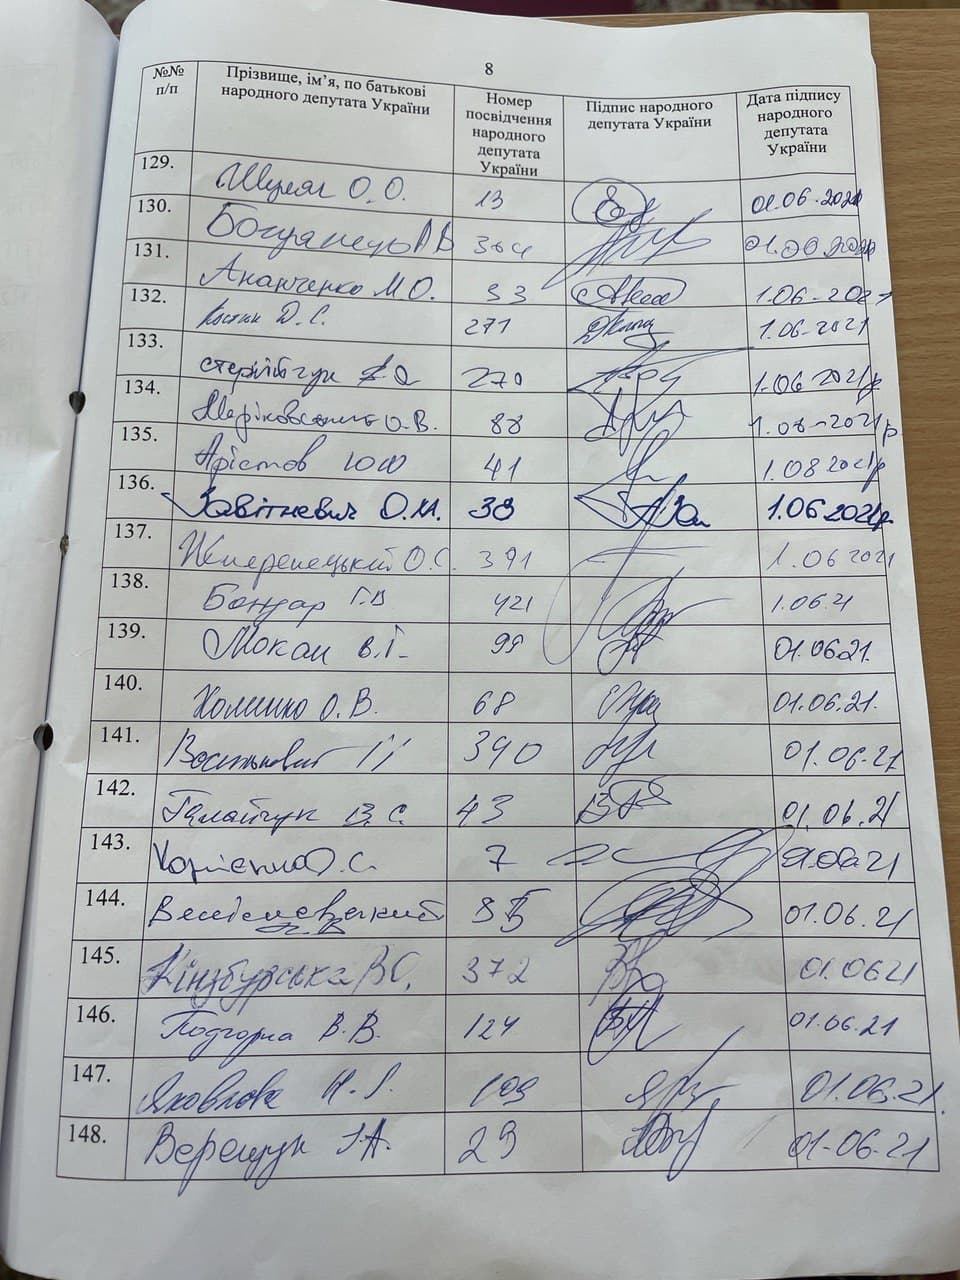 8
№№ п/п Прізвище, ім’я, по батькові народного депутата України Номер посвідчення народного депутата України Підпис народного депутата України Дата підпису народного депутата України
129. Шуляк О.О. 13 01.06.2021
130. Богданець А.В. 364 01.06.2021
131. Ананченко М.О. 33 1.06-2021
132. Костюк Д.С. 271 1.06-2021
133. 270 1.06 2021р
134. Маріковський О.В. 88
135. Арістов Ю.Ю 41
136. Завітневич О.М. 38 1.06 2021р.
137. Жмеренецький О.С. 391 1.06 2021
138. Бондар Г.В 421 1.06.21
139. Мокан В.І. 99 01.06.21.
140. Холмико О.В. 68 01.06.21.
141. 390 01.06.21
142. Галайчук В.С. 43 01.06.21
143. Корнієнко О.С. 7 01.06.21
144. 01.06.21
145. Кінзбурська В.О. 372 01.0621
146. Подгорна В.В. 124 01.06.21
147. Яковлєва Н.І. 109 01.06.21.
148. Верещук І.А. 29 01-06.21